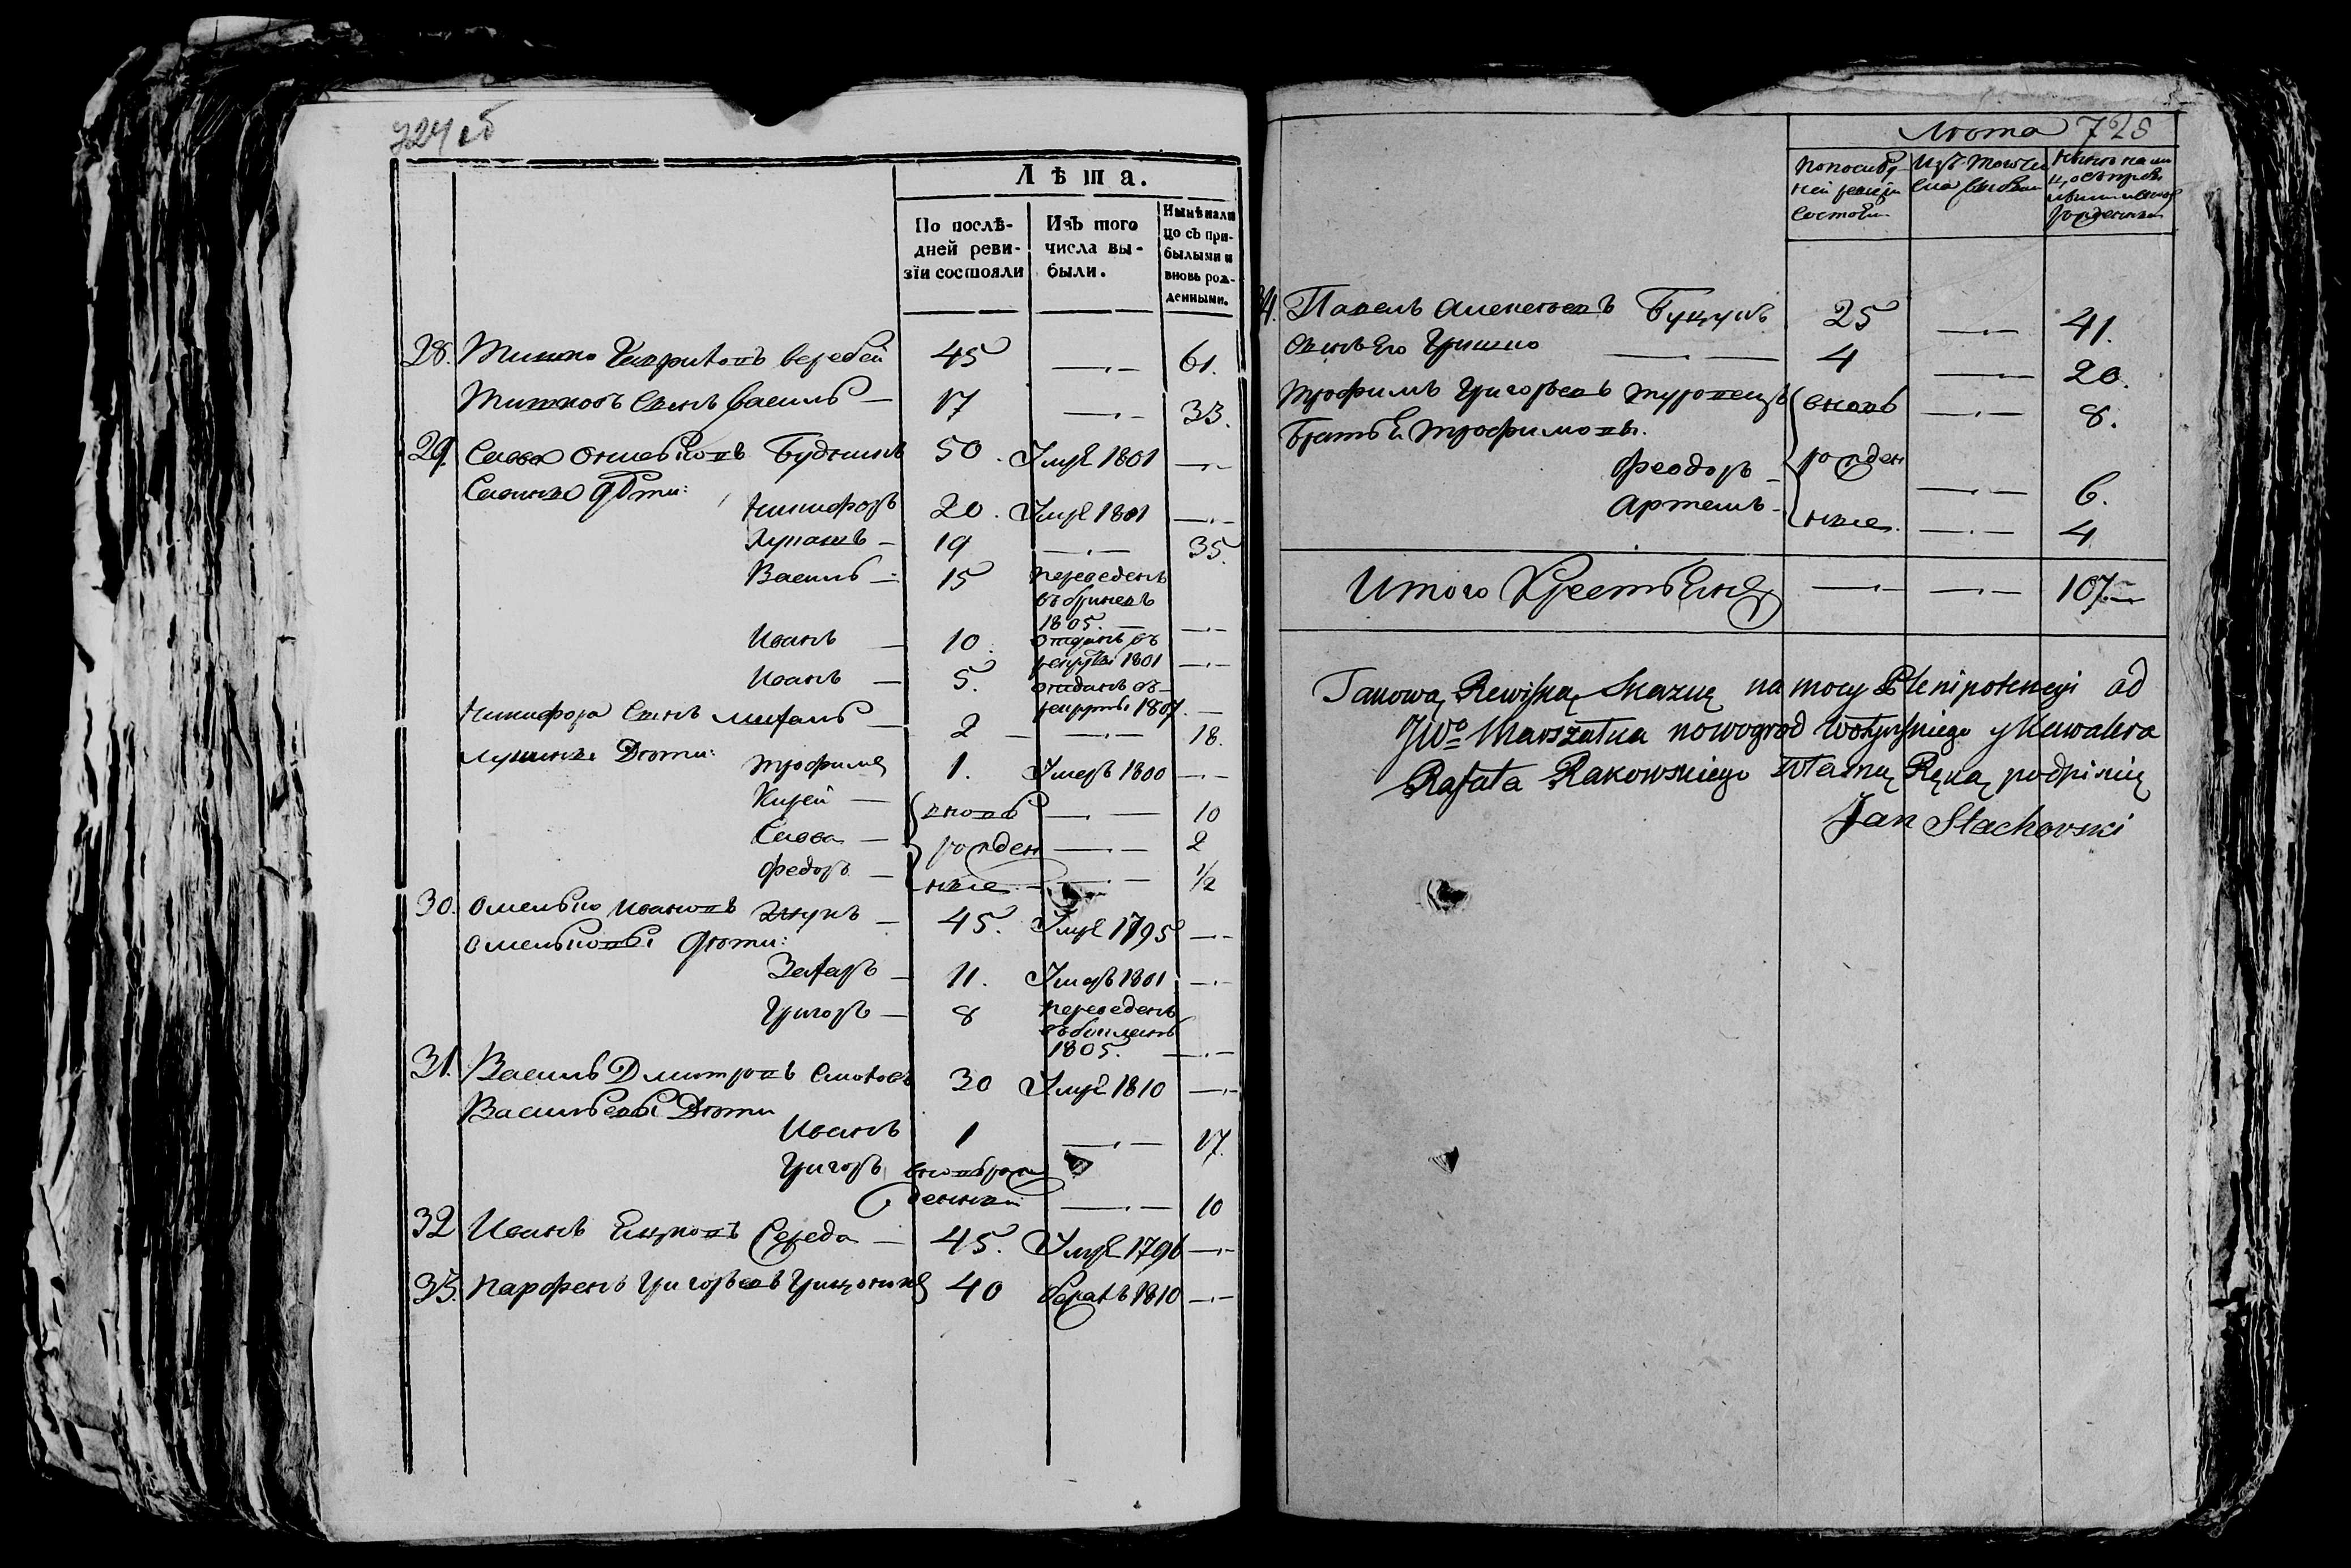 724 об
Лѣта.
По послѣ-
дней реви-
зіи состояли
Изъ того
числа вы-
были.
Нынѣ нали
цо съ при-
былыми и
вновь рож-
денными.
28. Тишко Гаврилов веребей 45 —.— 61.
Тишковъ Сынъ василь — 17 —.— 33.
29. Савва Онисковъ Будникъ 50. Умре 1801 —.—
Саввины дѣти:
Никифоръ 20. Умре 1801 —.—
Лукашъ — 19 —.— 35.
Василь —: 15 переведенъ
1805. — —.—
Иванъ — 10. отданъ въ
рекруты 1801 —.—
Иванъ — 5. отданъ въ
рекруты 1807. —
Никифора Сынъ михаль — 2 —.— 18.
Лукашовы Дѣти: Трофимъ 1. Умеръ 1800 —.—
Кирей — вновь —.— 10
Савва — рожден —.— 2
Федоръ — ные —.— 1/2
30. Омелько Ивановъ жукъ — 45. Умре 1795 —.—
Омельковы дѣти:
Захаръ — 11. Умеръ 1801 —.—
Григоръ — 8 переведенъ
1805. —.—
31. Василь Дмитровъ 30 Умре 1810 —.—
Васильевы Дѣти
Иванъ 1 —.— 17.
Григоръ вновь рож
денный —.— 10
32 Иванъ Середа — 45. Умре 1796 —.—
33. Парфенъ Григорьевъ 40 1810 —.—
Лѣта 728
По послѣд
ней ревизіи
состояли
Изъ того чи
сла выбыли
Нынѣ на ли
цо съ прибы
рожденными
34. Павелъ Алексѣевъ 25 —.— 41.
Сынъ Его Гришко —.— 4 —.— 20.
Трофимъ Григорьевъ вновь —.— 8.
Братья Трофимовы.
Феодоръ — рожден —.— 6.
Артемъ — ные. —.— 4
Итого Крестьянъ —.— —.— 107.—
Takową Rewiską Skazkę na mocy Plenipotencyi od
JWo Marszałka nowogrod Wołyńskiego y Kawalera
Rafała Rakowskiego własną Ręką podpisuię
Jan Stachowski